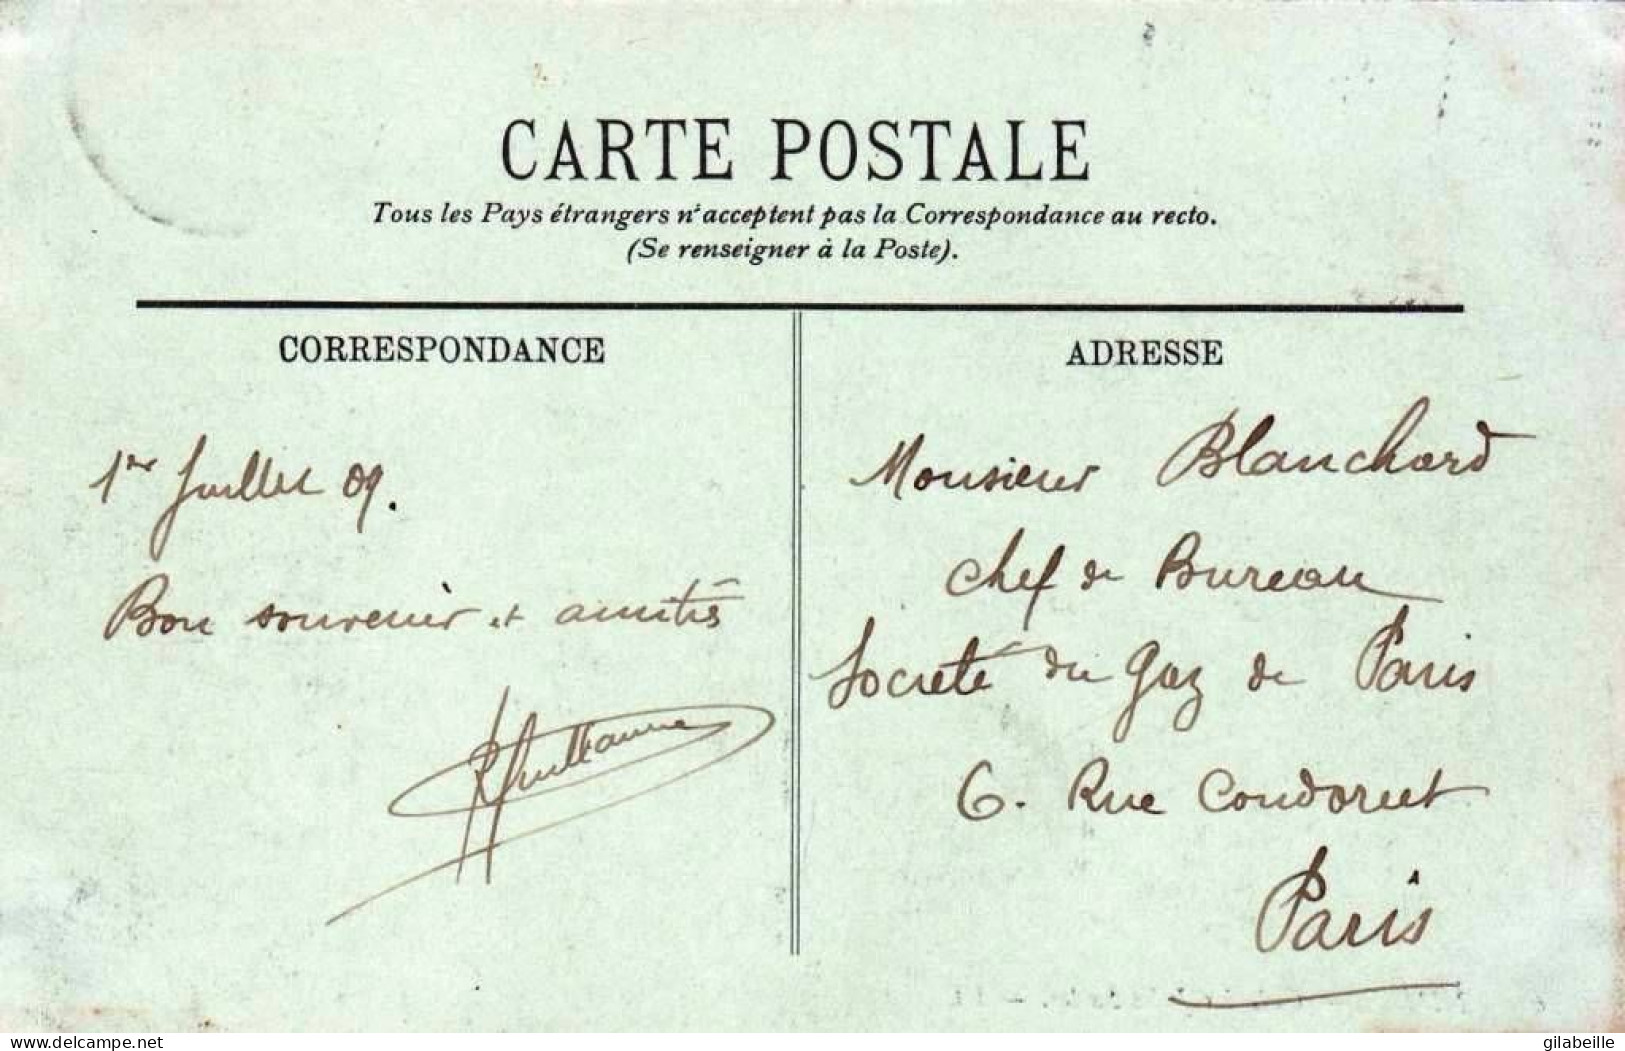 CARTE POSTALE
Tous les Pays étrangers n'acceptent pas la Correspondance au recto.
(Se renseigner à la Poste).
CORRESPONDANCE
ADRESSE
1er Juillet 09.
Bon souvenir et amitiés
Monsieur Blanchard
Chef de Bureau
Societé du Gaz de Paris
6. Rue Condorcet
Paris
delcampe.net
gilabeille